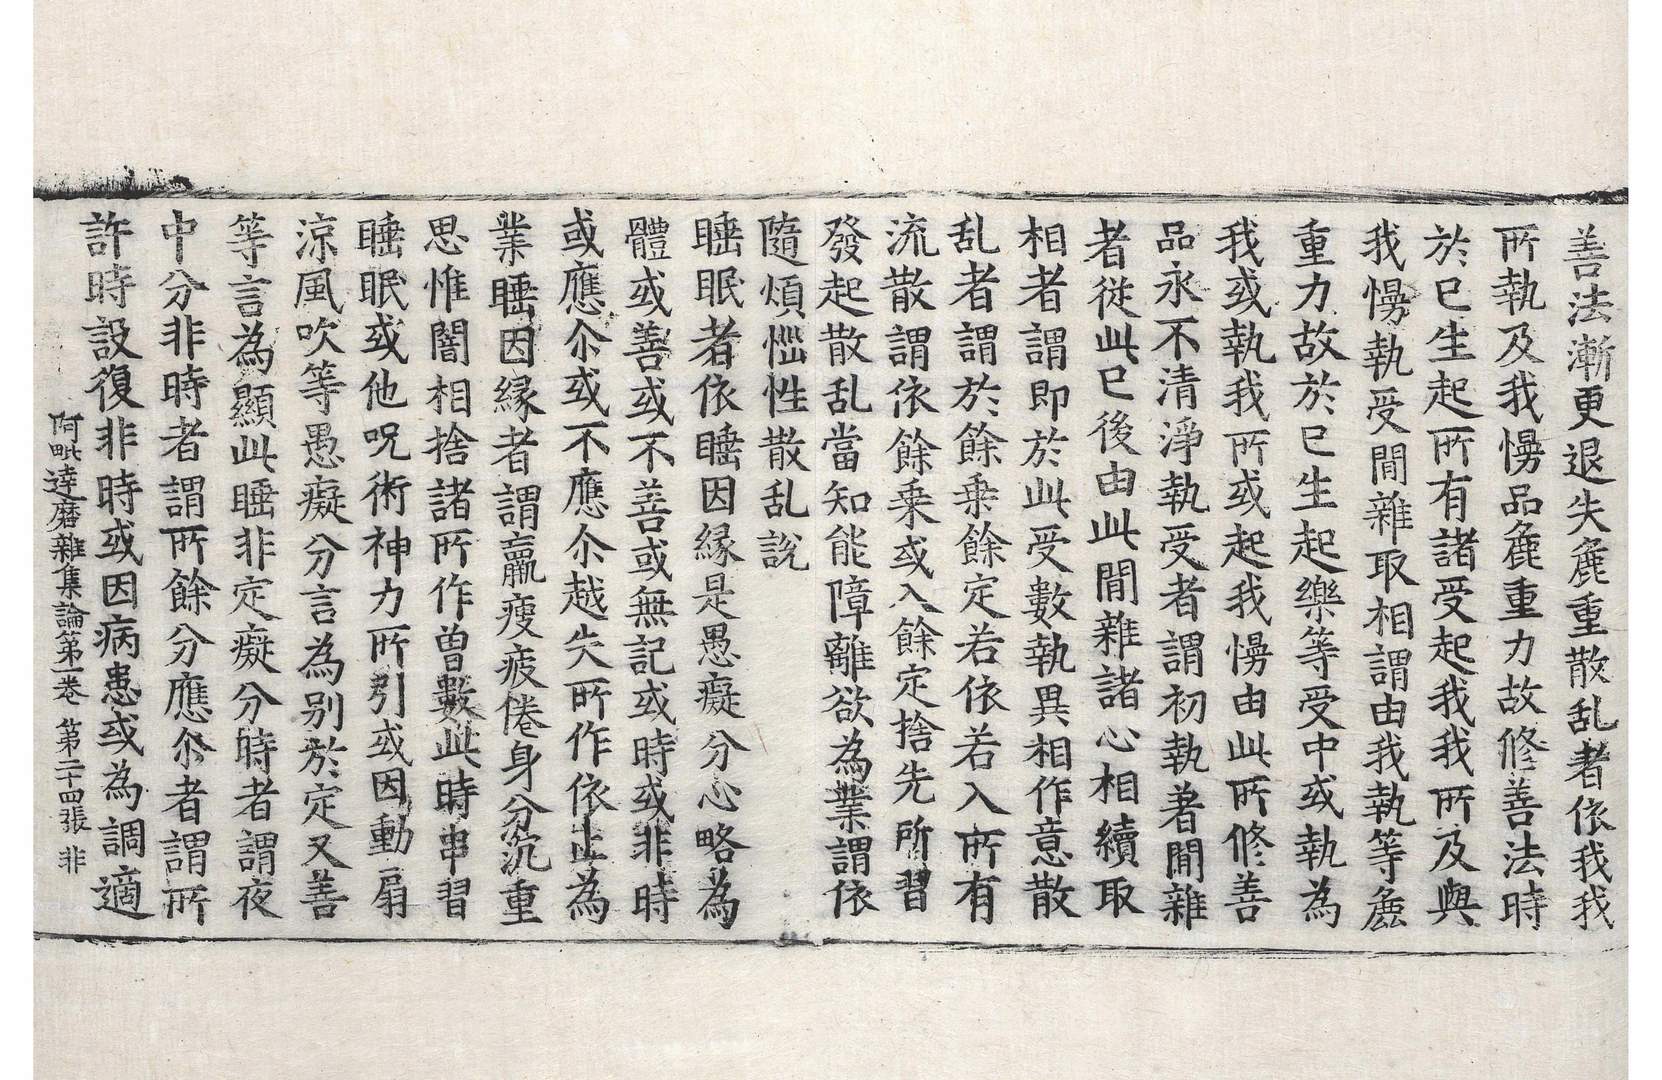 善法漸更退失麁重散乱者依我我
所執及我慢品麁重力故修善法時
於已生起所有諸受起我我所及與
我慢執受間雜取相謂由我執等麁
重力故於已生起樂等受中或執為
我或執我所或起我慢由此所修善
品永不清淨執受者謂初執著間雜
者從此已後由此間雜諸心相續取
相者謂即於此受數執異相作意散
乱者謂於餘乗餘定若依若入所有
流散謂依餘乗或入餘定捨先所習
發起散乱當知能障離欲為業謂依
隨煩惱性散乱說
睡眠者依睡因縁是愚癡分心略為
體或善或不善或無記或時或非時
或應尒或不應尒越失所作依止為
業睡因縁者謂羸瘦疲倦身分沉重
思惟闇相捨諸所作曾數此時串習
睡眠或他呪術神力所引或因動扇
涼風吹等愚癡分言為別於定又善
等言為顯此睡非定癡分時者謂夜
中分非時者謂所餘分應尒者謂所
許時設復非時或因病患或為調適
阿毗達磨雜集論第一卷 第二十四張 非